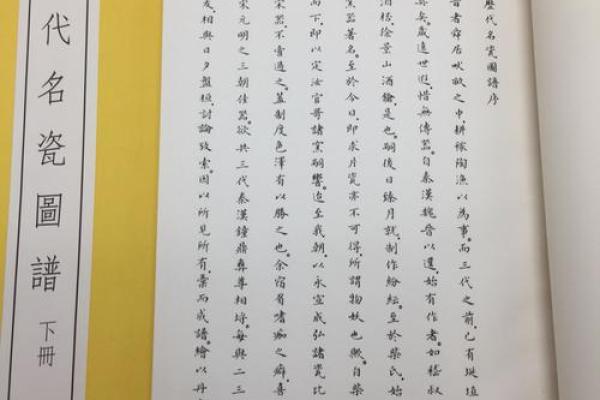 歷代名瓷圖譜序
昔者舜居畎畝之中，耕稼陶漁以為事。而三代之前，已有埏埴
矣。歲遠世遐，惜無傳器。自秦漢魏晉以還，始有作者。如嵇叔
酒榼，徐景山酒鎗是也。嗣後日臻月就，制作紛紜。至於柴氏，始
窯器著名。至於今日，即求片瓷亦不可得，所謂物妖也歟。自柴
而下，即以定汝官哥諸窯嗣響。迨至我朝，以永宣成弘諸瓷比
宋器，不啻過之。蓋制度色澤有以勝之也。余宿有嗜痂之癖，喜
宋元明之三朝佳器，欲共三代秦漢鐘鼎彝尊相埒。每與二三
友，相與日夕盤桓，討論攷索。因以所見所有，彙而成譜。繪以丹
代名瓷圖譜 下冊